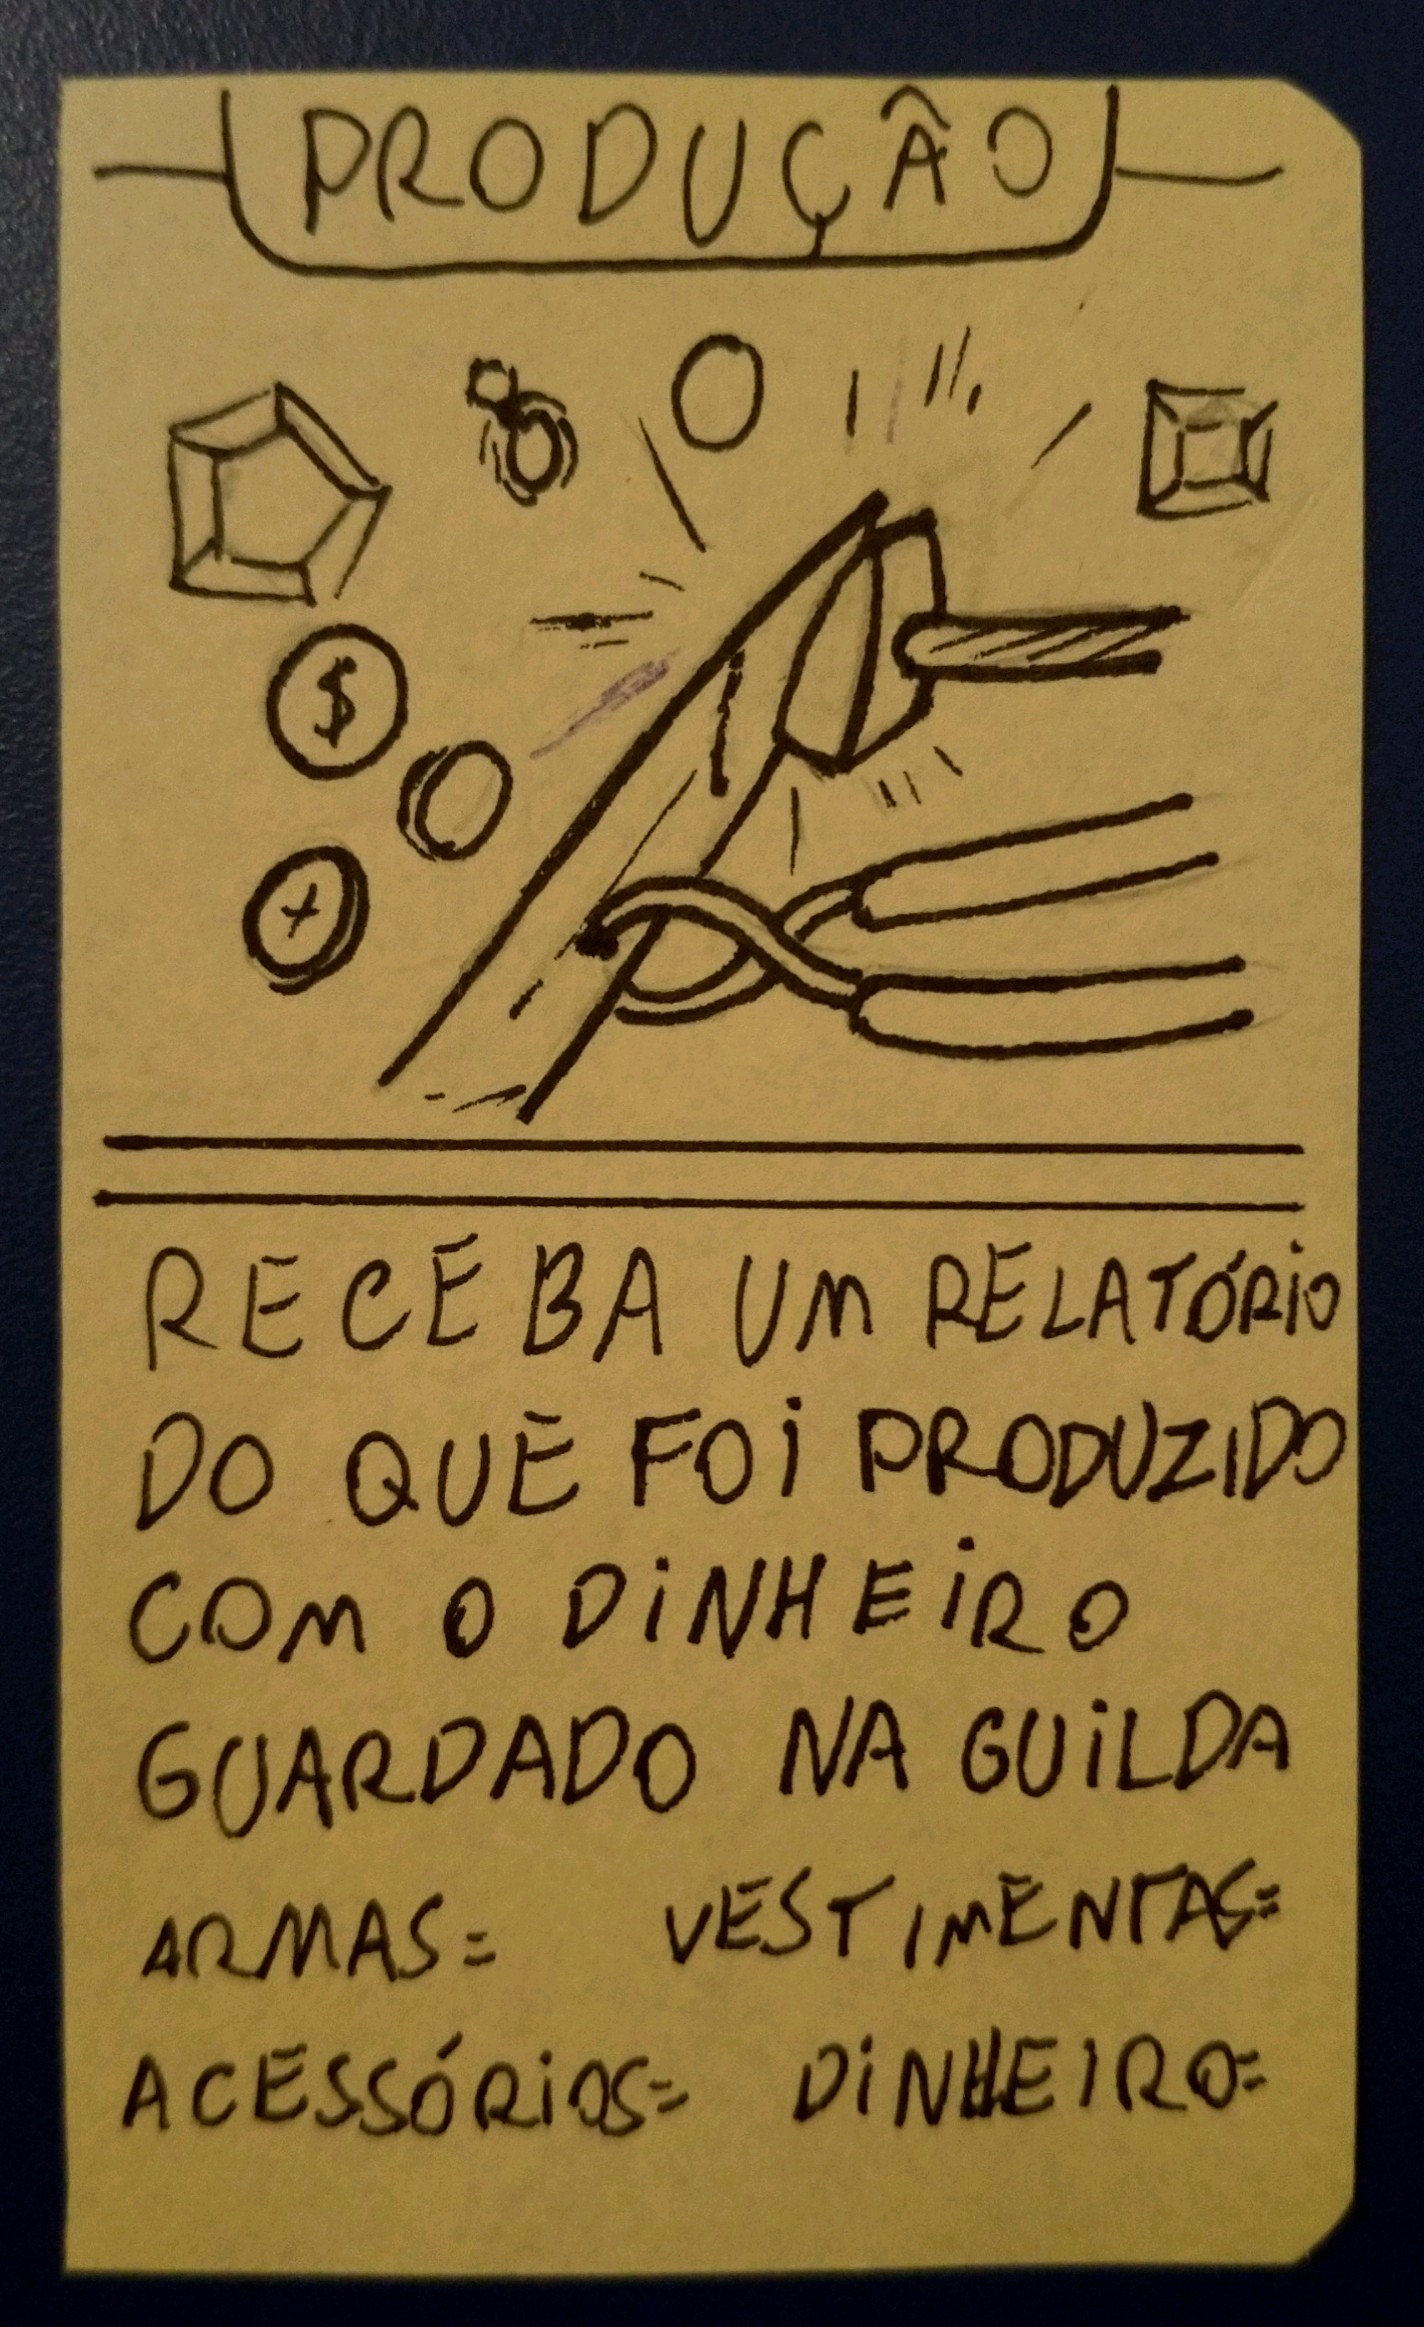 PRODUÇÂO
$
+
RECEBA UM RELATÓRIO
DO QUE FOI PRODUZIDO
COM O DINHEIRO
GUARDADO NA GUILDA
ARMAS= VESTIMENTAS=
ACESSÓRIOS= DINHEIRO=